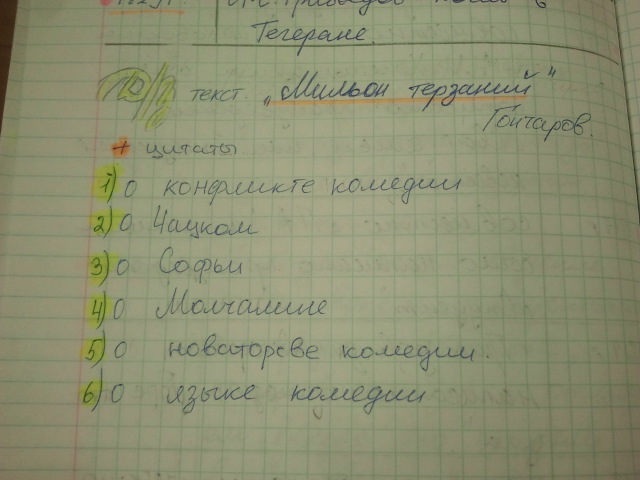 1829г. А.С. Грибоедов посол в
Тегеране.
Д/з текст. „Мильон терзаний"
Гончаров.
+ цитаты
1) о конфликте комедии
2) о Чацком
3) о Софьи
4) о Молчалине
5) о новаторсве комедии.
6) о языке комедии